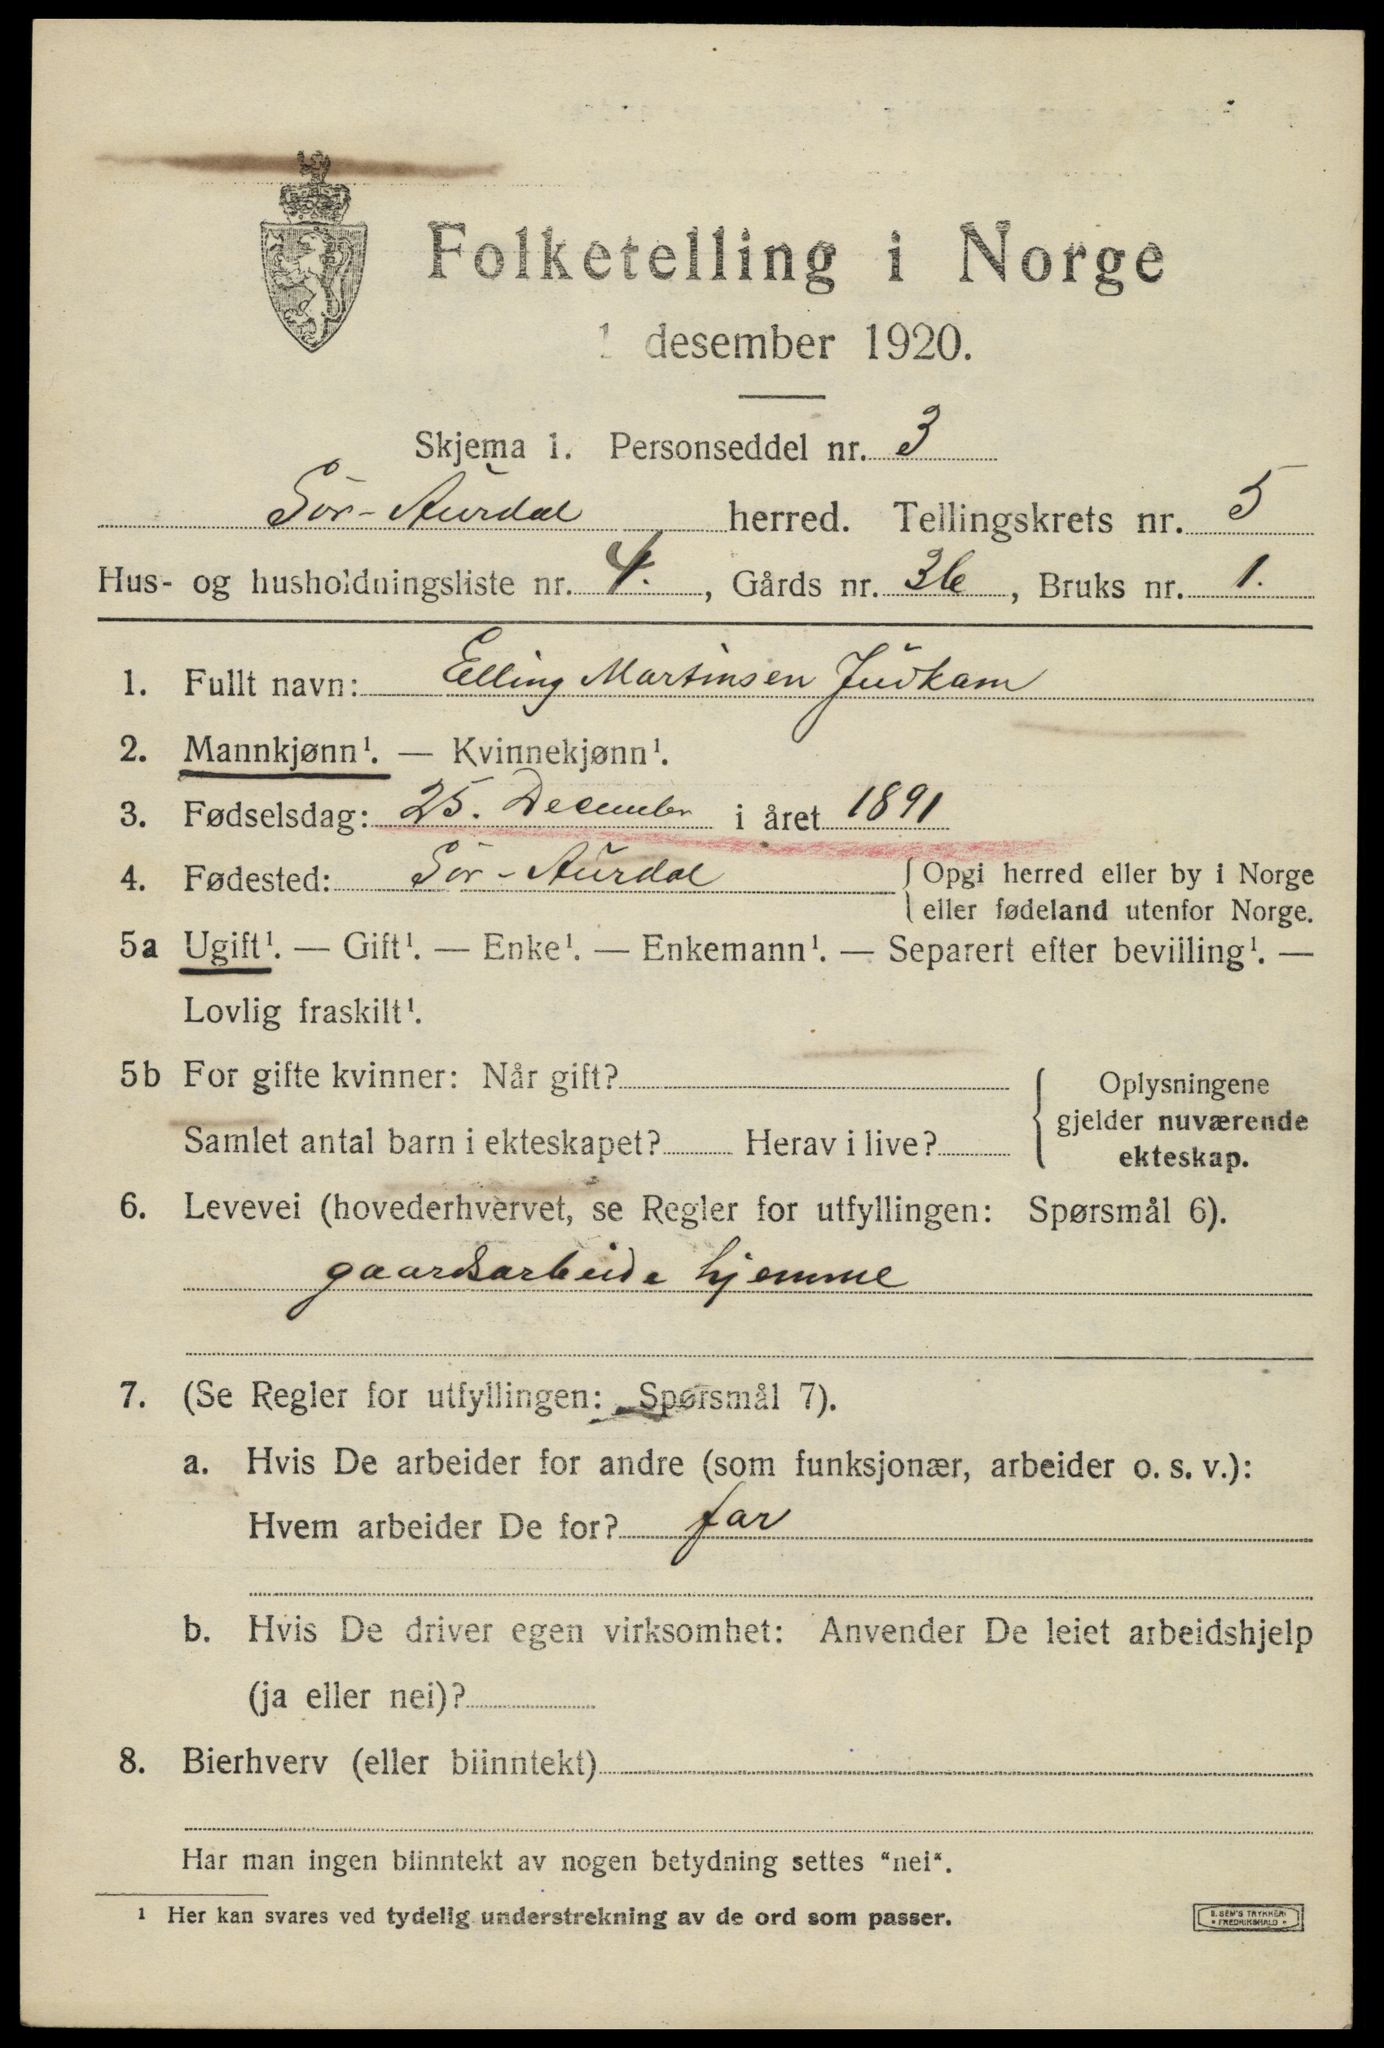 Folketelling i Norge
1 desember 1920.
Skjema 1. Personseddel nr. 3
Sör-Aurdal herred. Tellingskrets nr. 5
Hus- og husholdningsliste nr. 4., Gårds nr. 36, Bruks nr. 1.
1. Fullt navn: Elling Martinsen Juvkam
2. Mannkjønn¹. — Kvinnekjønn¹.
3. Fødselsdag: 25. December i året 1891
4. Fødested: Sör-Aurdal { Opgi herred eller by i Norge
eller fødeland utenfor Norge.
5a Ugift¹. — Gift¹. — Enke¹. — Enkemann¹. — Separert efter bevilling¹. —
Lovlig fraskilt¹.
5b For gifte kvinner: Når gift?
Samlet antal barn i ekteskapet? Herav i live?
{ Oplysningene
gjelder nuværende
ekteskap.
6. Levevei (hovederhvervet, se Regler for utfyllingen: Spørsmål 6).
gaardsarbeide hjemme
7. (Se Regler for utfyllingen: Spørsmål 7).
a. Hvis De arbeider for andre (som funksjonær, arbeider o. s. v.):
Hvem arbeider De for? far
b. Hvis De driver egen virksomhet: Anvender De leiet arbeidshjelp
(ja eller nei)?
8. Bierhverv (eller biinntekt)
Har man ingen biinntekt av nogen betydning settes "nei".
¹ Her kan svares ved tydelig understrekning av de ord som passer.
E. SEM'S TRYKKERI
• FREDRIKSHALD •